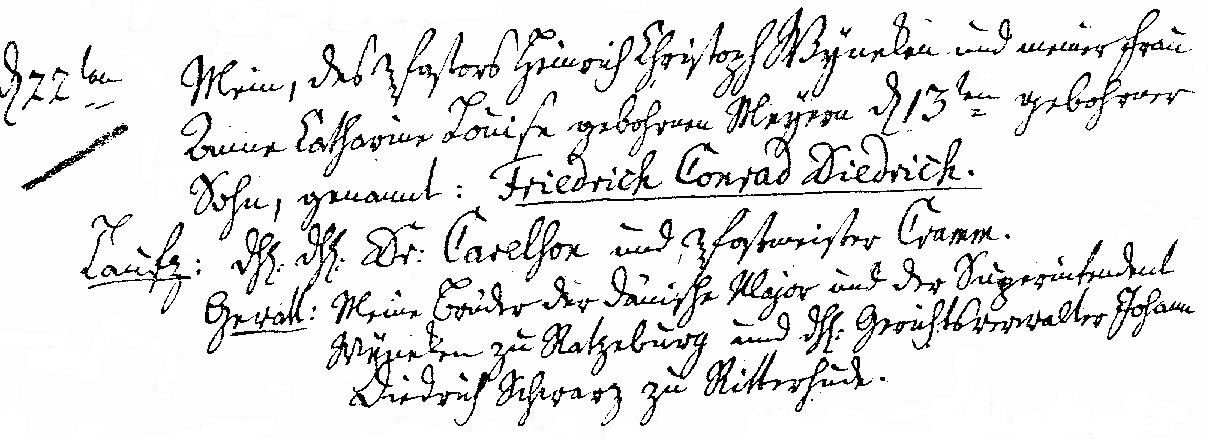 d 22ten Mein, des Pastors Heinrich Christoph Wÿneken und meiner Frau
Anne Catharine Louise gebohrnen Meÿern d 13ten gebohrner
Sohn, genannt: Friedrich Conrad Diedrich.
Taufz: dH. dH. Dr: Carelhon und Postmeister Cramm.
Gevatt: Meine Brüder der dänische Major und der Superintendent
Wÿneken zu Ratzeburg und dH: Gerichtsverwalter Johann
Diedrich Schwarz zu Ritterhude.